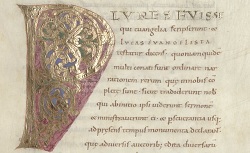 PLURES FUISSE
qui euangelia scripserunt et
LUCAS EUANGELISTA
dicens quoniamquide
multi conati sunt ordinare nar
rationem rerum quae innobis co
pletae sunt sicut tradiderunt nobis
qui abinitio ipsi uiderunt sermone
et ministrauerunt ei et pseuerantia usq
adpresens tempus monumenta declarant
quae adiuersis auctoribus edita